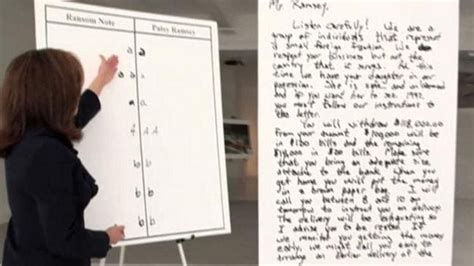 Ransom Note Patsy Ramsey
a a
a a a
a a
b b
b b
b b
Mr. Ramsey,
Listen carefully! We are a
group of individuals that represent
a small foreign faction. We do
respect your business but not the
country that it serves. At this
time we have your daughter in our
posession. She is safe and unharmed
and if you want her to see 1997,
you must follow our instructions to
the letter.
You will withdraw $118,000.00
from your account. $100,000 will be
in $100 bills and the remaining
$18,000 in $20 bills. Make sure
that you bring an adequate size
attache to the bank. When you
get home you will put the money
in a brown paper bag. I will
call you between 8 and 10 am
tomorrow to instruct you on delivery.
The delivery will be exhausting so
I advise you to be rested. If
we monitor you getting the money
early, we might call you early to
arrange an earlier delivery of the